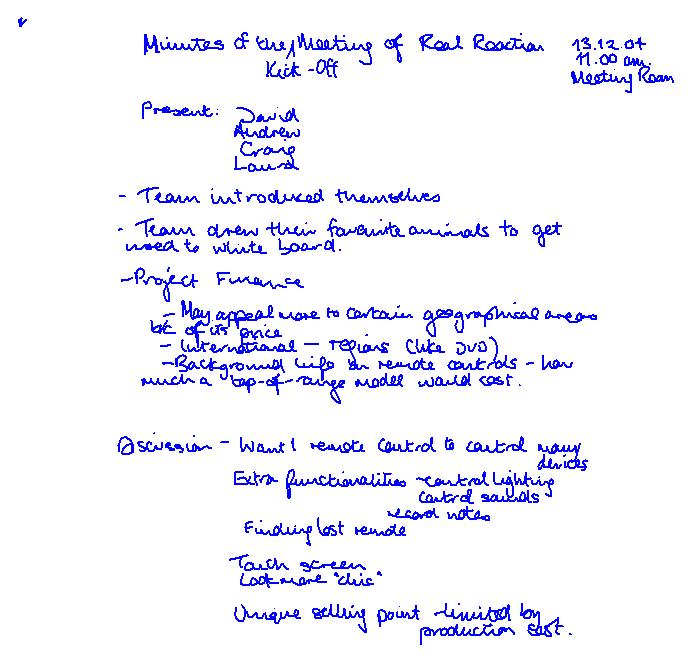 Minutes of the Meeting of Real Reaction 13.12.04
Kick-Off 11.00 am.
Meeting Room
Present: David
Andrew
Craig
Laura
- Team introduced themselves
- Team drew their favourite animals to get
used to white board.
- Project Finance
- May appeal more to certain geographical areas
b/c of its price
- International - regions (like DVD)
- Background info on remote controls - how
much a top-of-range model would cost.
Discussion - Want 1 remote control to control many
devices
Extra functionalities - control lighting
control sounds
record notes
Finding lost remote
Touch screen
Look more "chic"
Unique selling point - limited by
production cost.